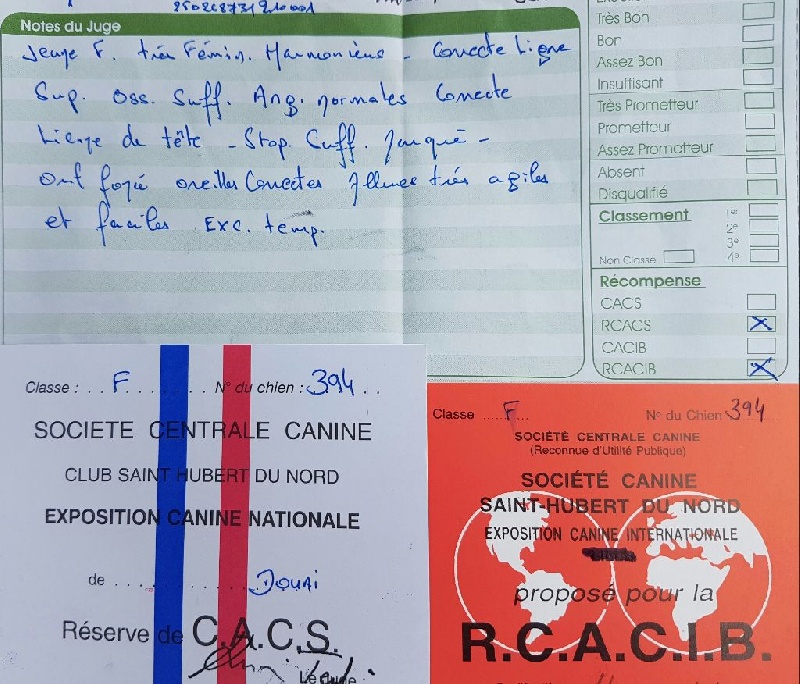 Notes du Juge
Jeune F. très Fémin. Harmonieuse - Correcte Ligne
Sup. Oss. Suff. Ang. normales Correcte
de tête - Stop. Suff. marqué -
oreilles Correctes Allures très agiles
et faciles Exc. temp.
Très Bon
Bon
Assez Bon
Insuffisant
Très Prometteur
Prometteur
Assez Prometteur
Absent
Disqualifié
Classement
1er
2e
3e
4e
Non Classé
Récompense
CACS
RCACS
CACIB
RCACIB
Classe : F N° du chien : 394
SOCIETE CENTRALE CANINE
CLUB SAINT HUBERT DU NORD
EXPOSITION CANINE NATIONALE
de Douai
Réserve de C.A.C.S.
Le Juge
Classe F N° du Chien 394
SOCIÉTÉ CENTRALE CANINE
(Reconnue d'Utilité Publique)
SOCIÉTÉ CANINE
SAINT-HUBERT DU NORD
EXPOSITION CANINE INTERNATIONALE
proposé pour la
R.C.A.C.I.B.